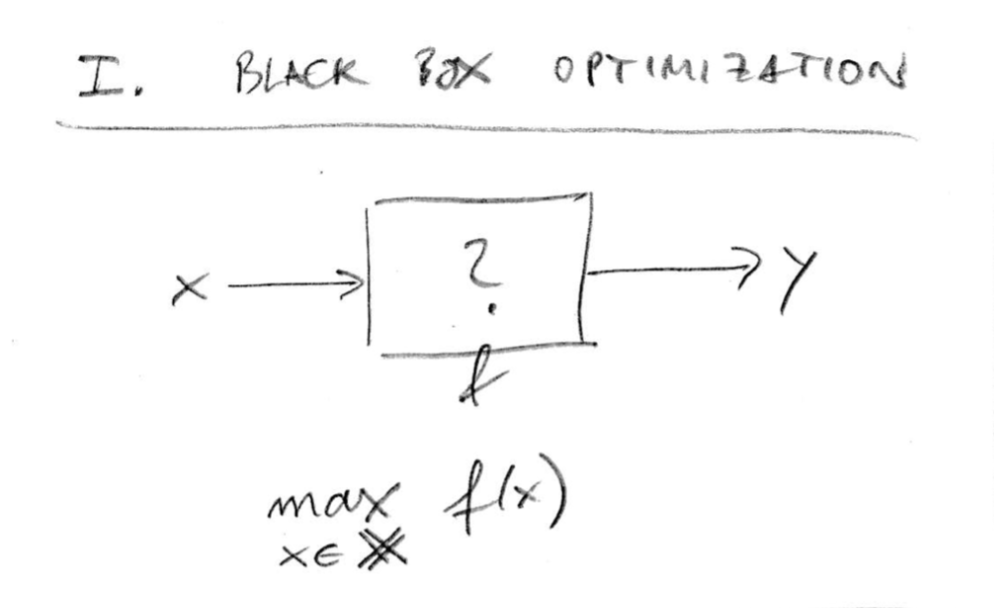 I. BLACK BOX OPTIMIZATION
x → ? → y
f
max f(x)
x ∈ 𝕏